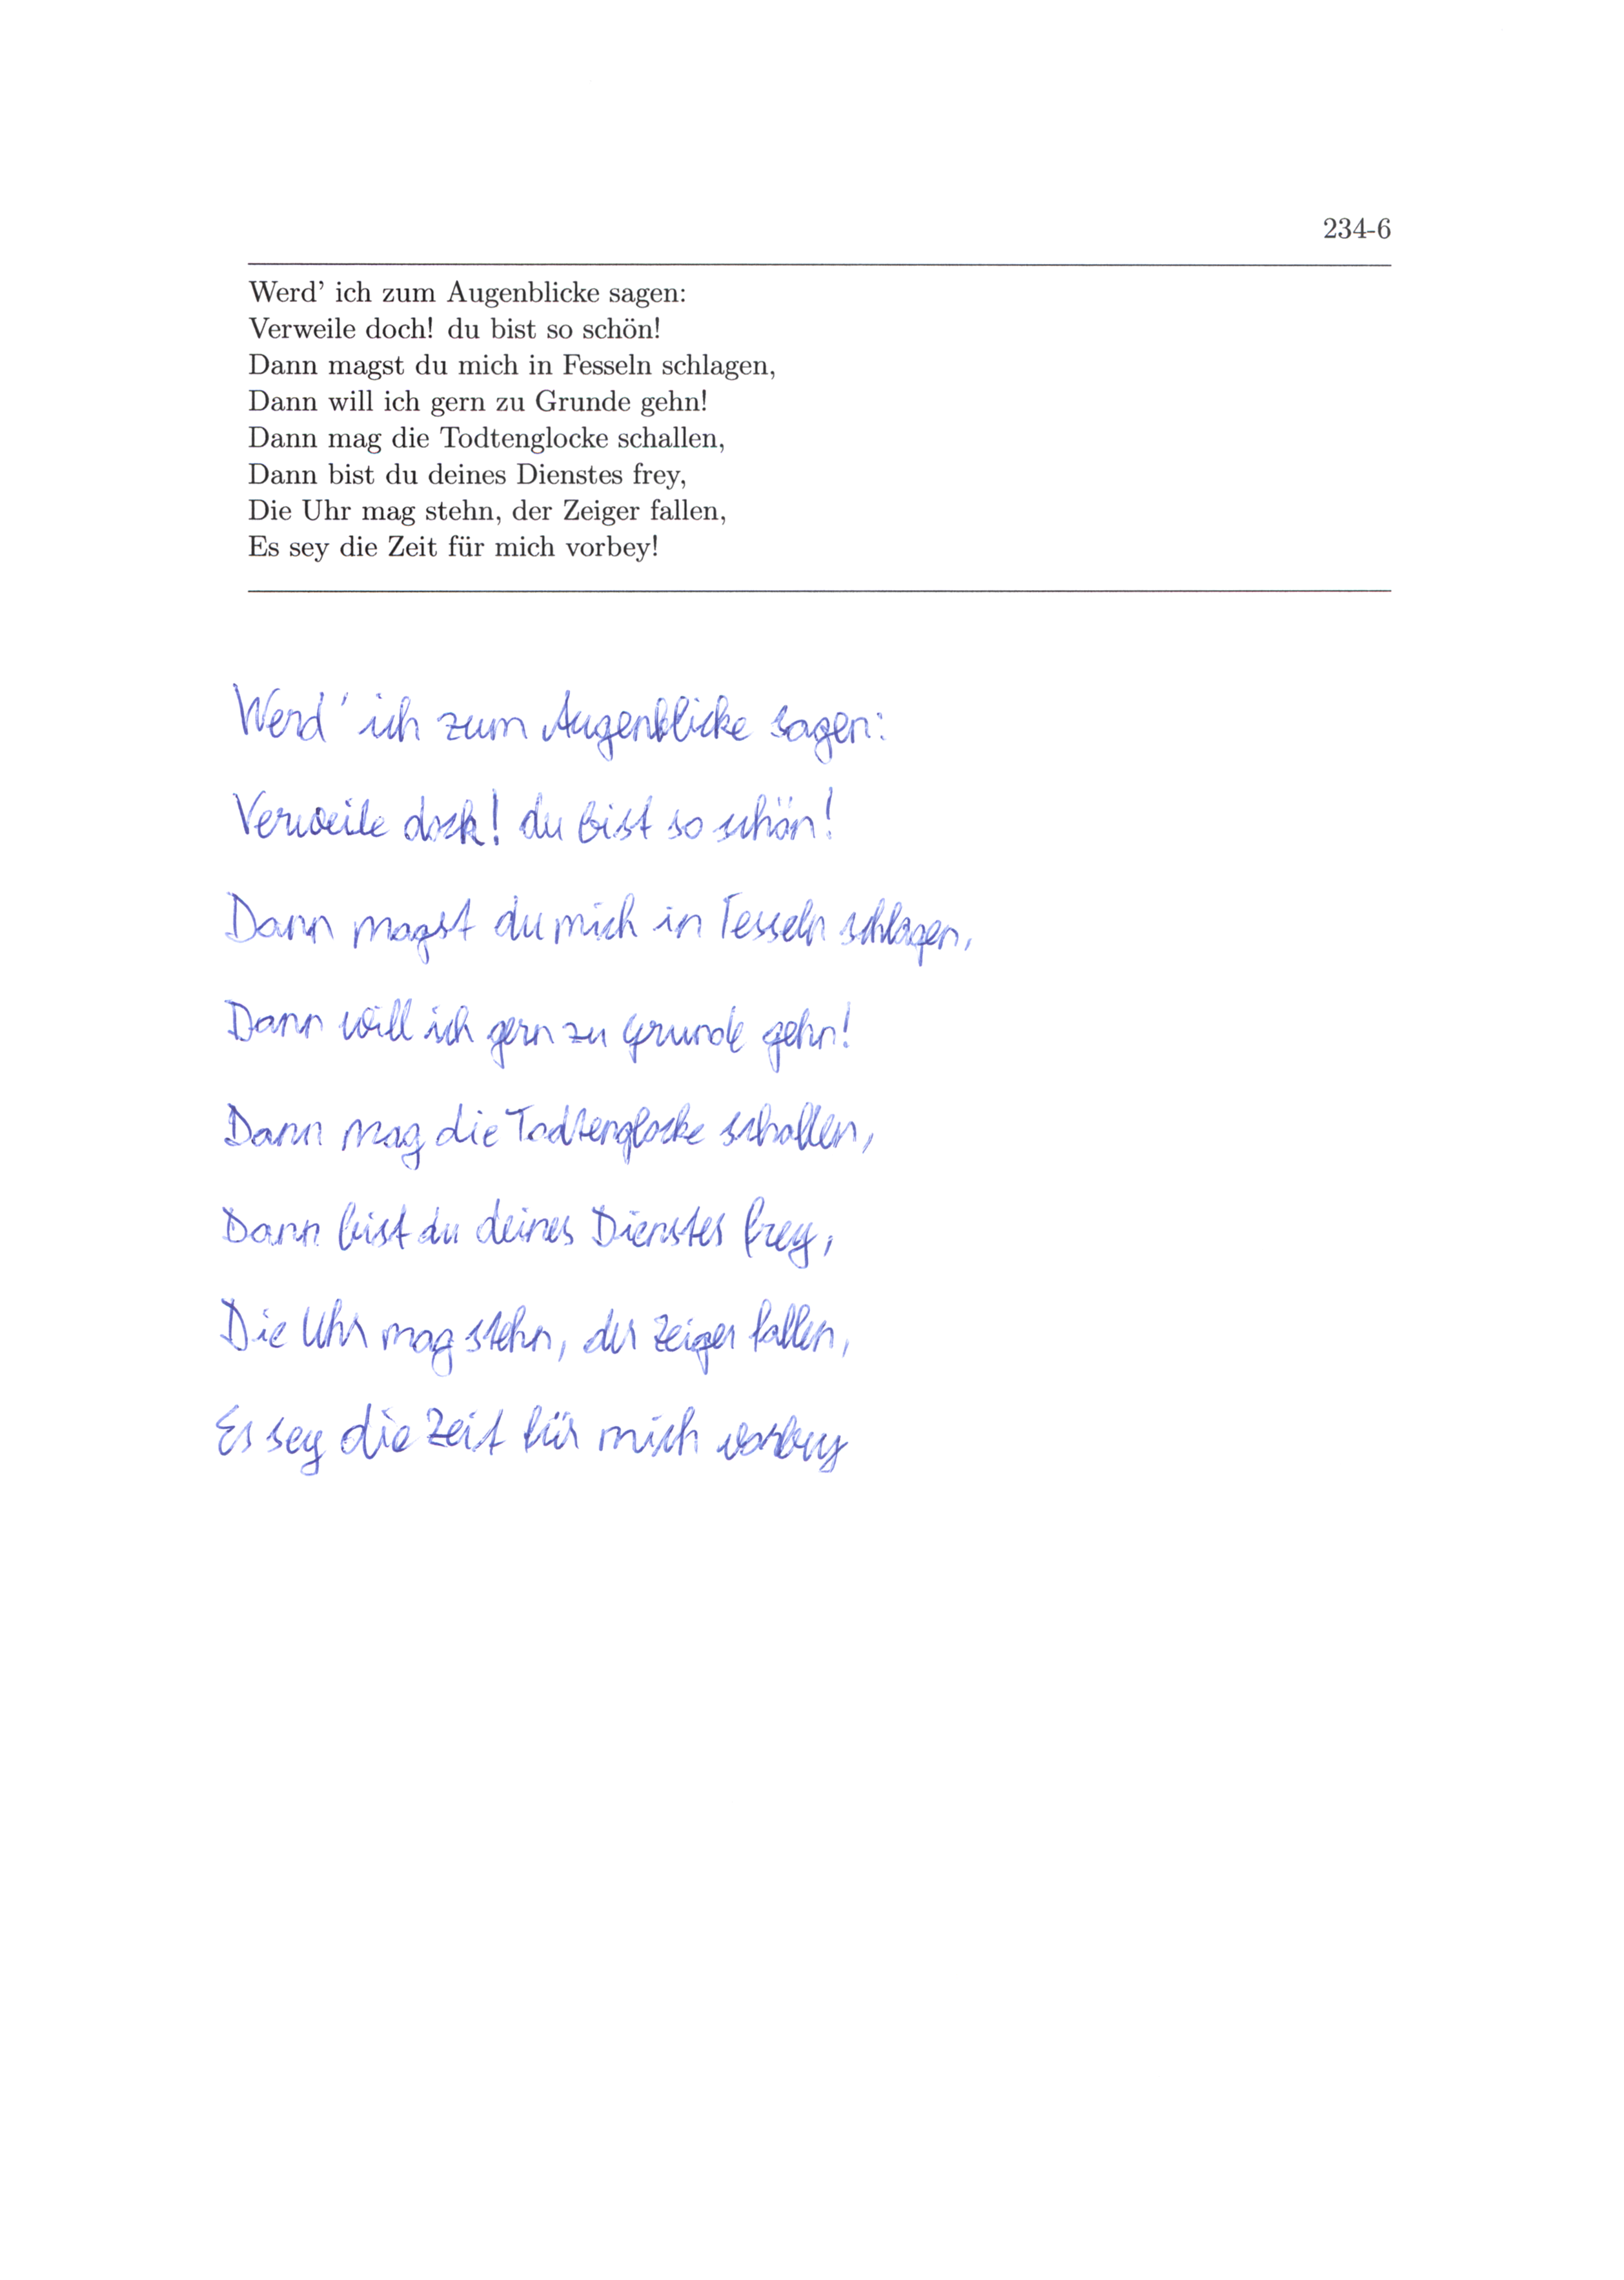 234-6
Werd' ich zum Augenblicke sagen:
Verweile doch! du bist so schön!
Dann magst du mich in Fesseln schlagen,
Dann will ich gern zu Grunde gehn!
Dann mag die Todtenglocke schallen,
Dann bist du deines Dienstes frey,
Die Uhr mag stehn, der Zeiger fallen,
Es sey die Zeit für mich vorbey!
Werd' ich zum Augenblicke sagen:
Verweile doch! du bist so schön!
Dann magst du mich in Fesseln schlagen,
Dann will ich gern zu Grunde gehn!
Dann mag die Todtenglocke schallen,
Dann bist du deines Dienstes frey,
Die Uhr mag stehn, der Zeiger fallen,
Es sey die Zeit für mich vorbey